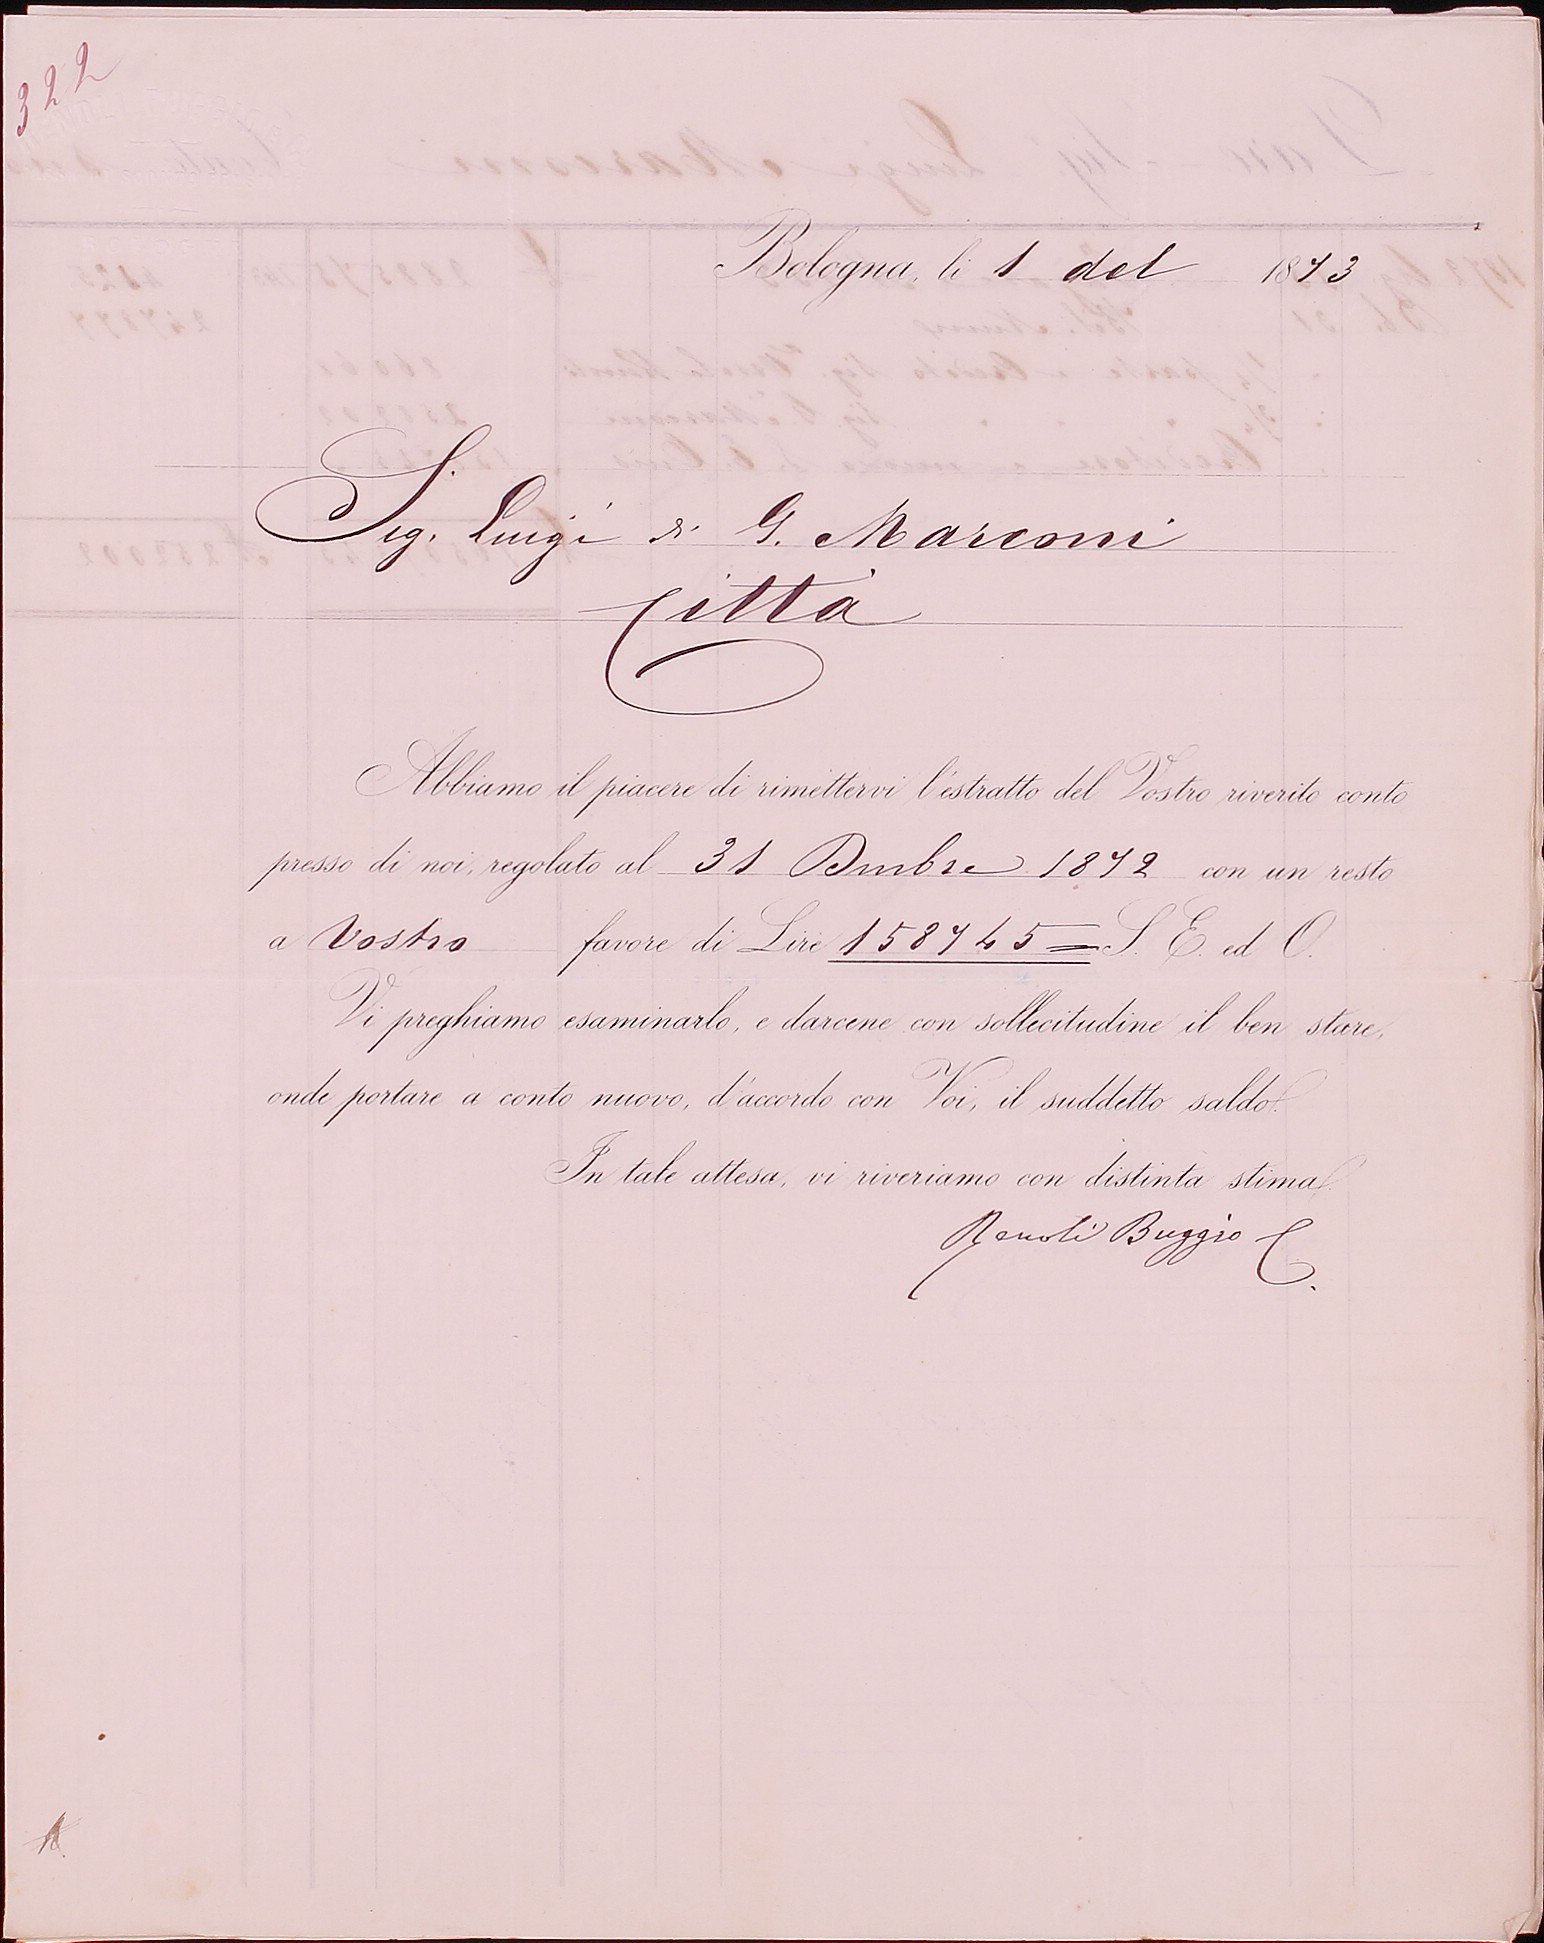 322
Bologna, li 1 del 1873
Sig. Luigi di G. Marconi
Città
Abbiamo il piacere di rimettervi l'estratto del Vostro riverito conto
presso di noi, regolato al 31 Dmbre 1872 con un resto
a Vostro favore di Lire 158745 = S. E. ed O.
Vi preghiamo esaminarlo, e darcene con sollecitudine il ben stare,
onde portare a conto nuovo, d'accordo con Voi, il suddetto saldo.
In tale attesa, vi riveriamo con distinta stima.
Renoli Buggio C.